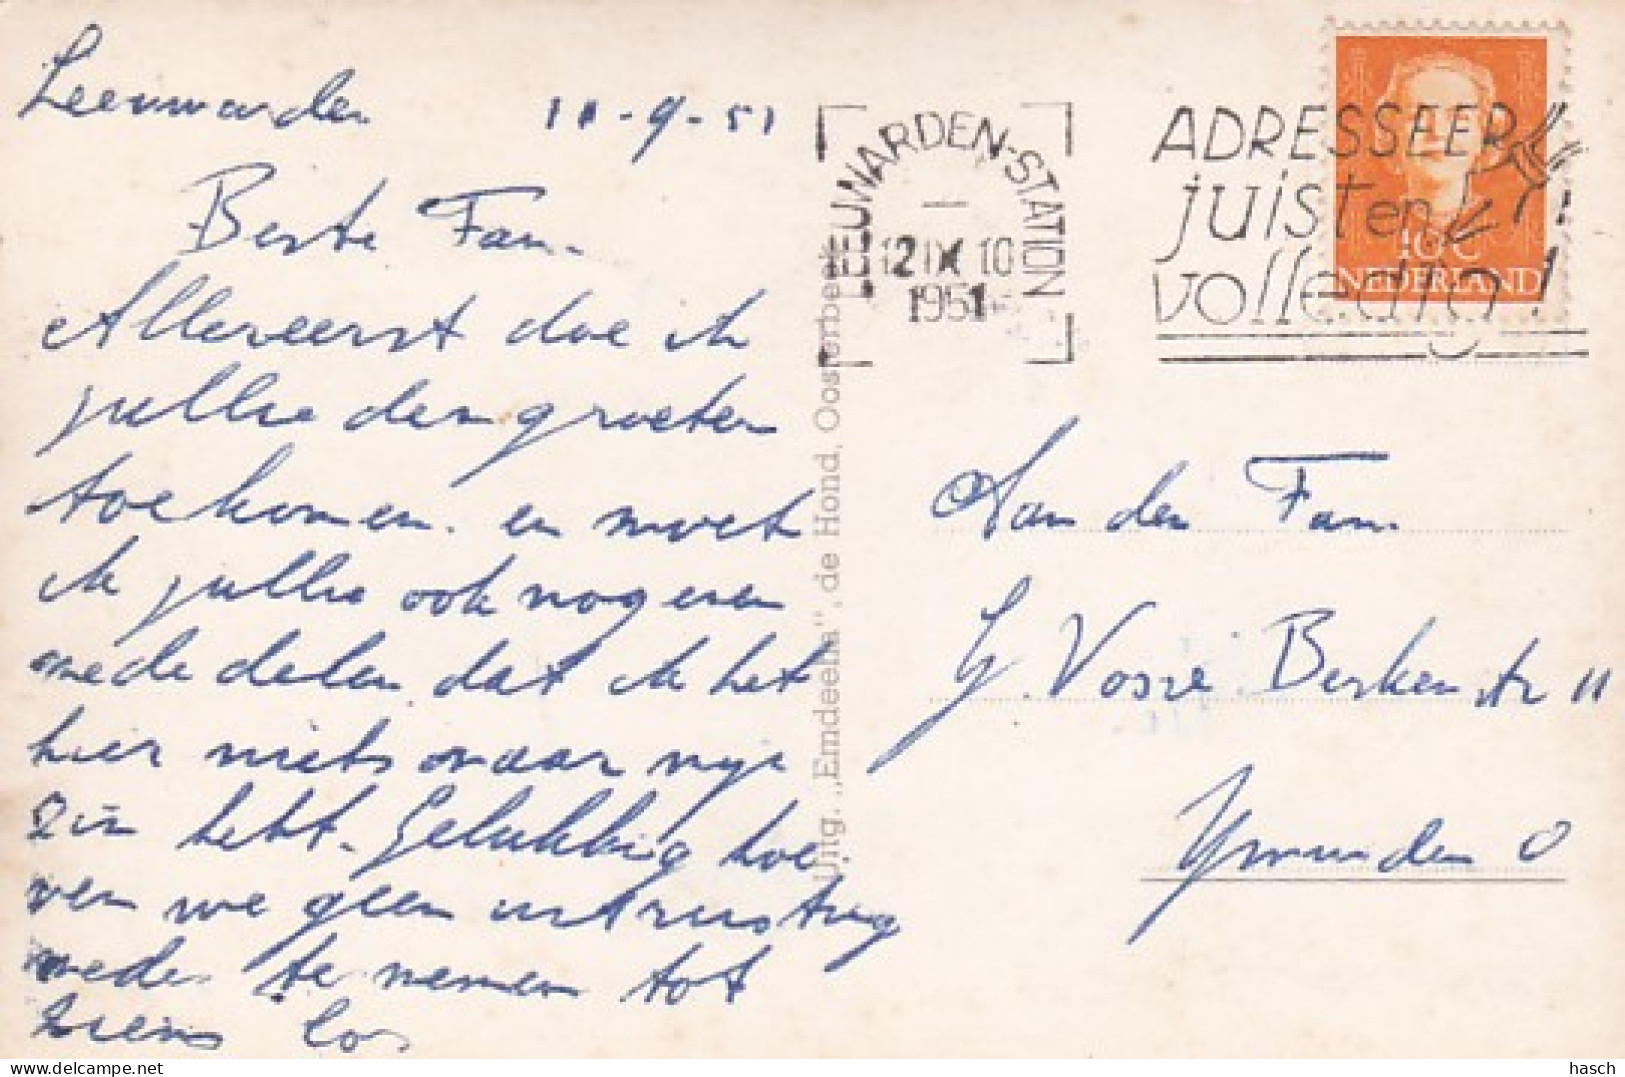 Leeuwarden 11-9-51
Beste Fam.
Allereerst doe ik
jullie den groeten
toekomen. en moet
ik jullie ook nog even
mede delen dat ik het
hier niets naar mijn
zin hebt. Gelukkig hoe
ven we geen uitrusting
mede te nemen tot
ziens Co
LEEUWARDEN-STATION
12 IX 10
1951
ADRESSEER
juist en
volledig!
10c
NEDERLAND
Uitg. „Emdeeha", de Hond, Oosterbeek
Aan den Fam.
G. Vosse Berkenstr 11
Ymuiden O
hasch
delcampe.net